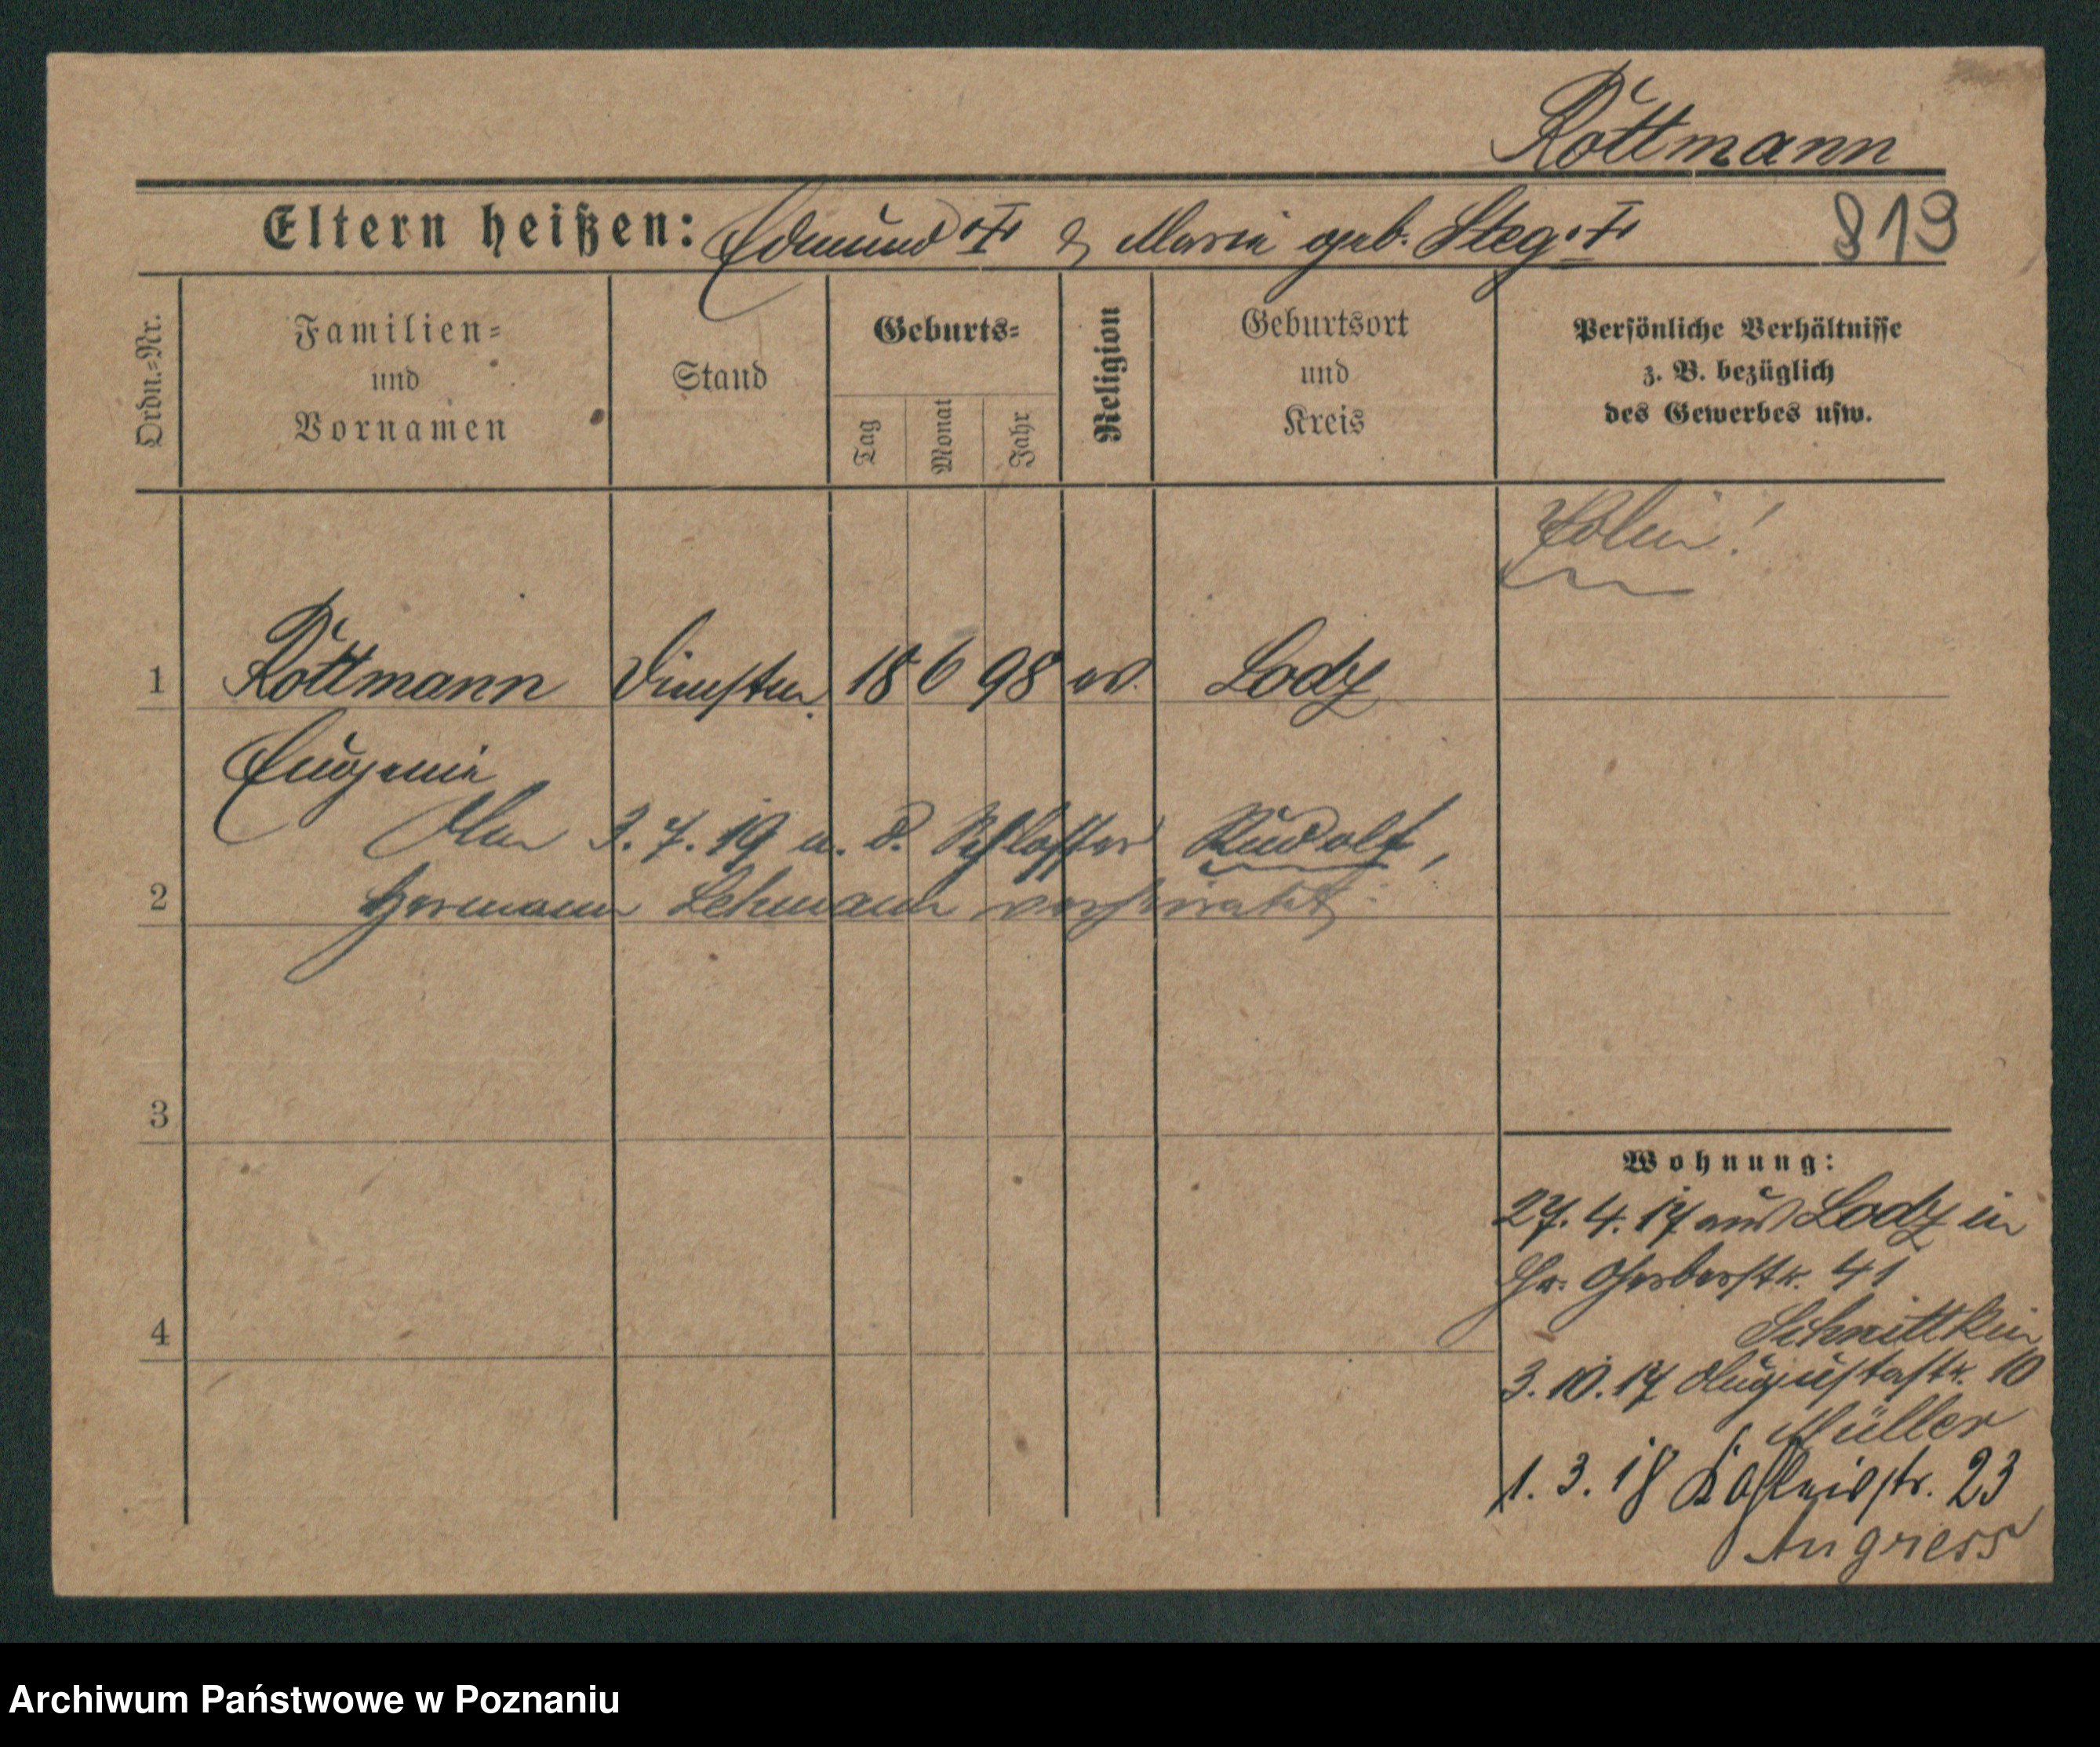 Rottmann
Eltern heißen: Edmund † & Maria geb. Steg. †
819
Ordn.-Nr.
Familien- und Vornamen
Stand
Geburts-
Tag
Monat
Jahr
Religion
Geburtsort und Kreis
Persönliche Verhältnisse
z. B. bezüglich
des Gewerbes usw.
Polin!
1 Rottmann 18 6 98 ev. Lodz
Eugenie
3.7.19 a. d. Schlosser Rudolf,
2 Hermann Lehmann verheiratet.
3
4
Wohnung:
27.4.17 aus Lodz in
Gr. Gerberstr. 41
Schnittkin
3.10.17 Augustastr. 10
Müller
1.3.18 23
Angress
Archiwum Państwowe w Poznaniu